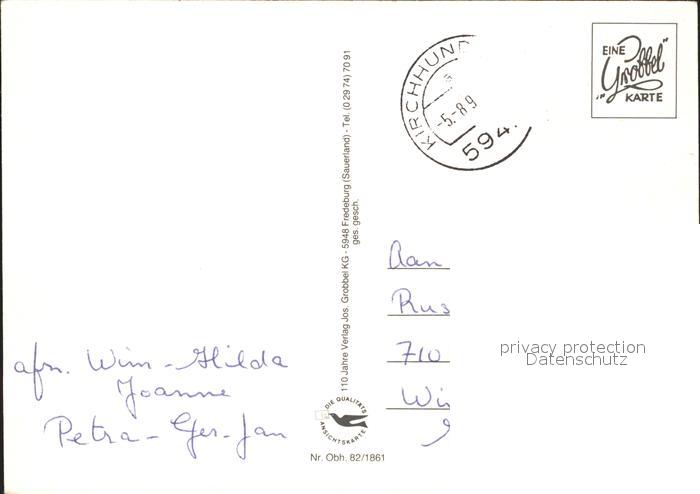 EINE
"Grobbel"
KARTE
KIRCHHUND
-5.-8.9
594.
110 Jahre Verlag Jos. Grobbel KG - 5948 Fredeburg (Sauerland) - Tel. (0 29 74) 70 91
ges. gesch.
Aan
Rus
710
Wi
privacy protection
Datenschutz
afn. Wim - Hilda
Joanne
Petra - Ger-Jan
DIE QUALITÄTS
ANSICHTSKARTE
Nr. Obh. 82/1861